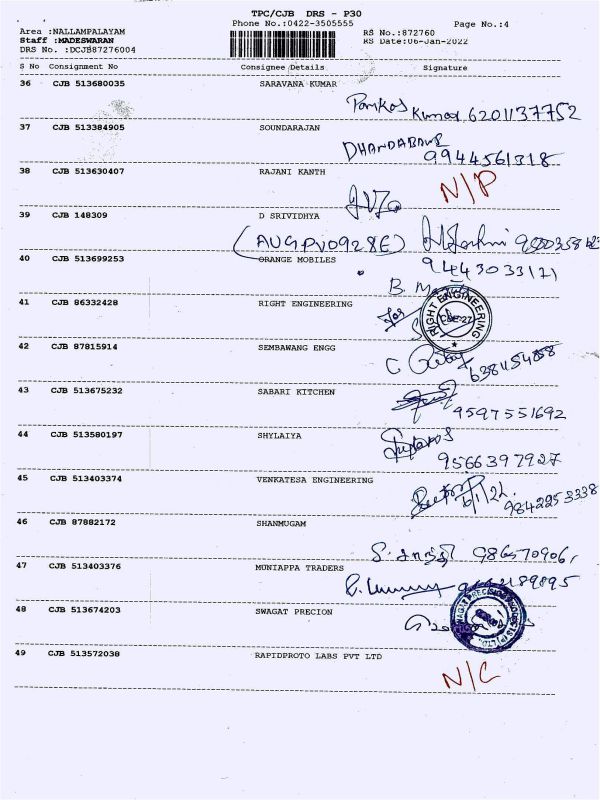 TPC/CJB DRS - P30
Phone No.:0422-3505555
Page No.:4
Area :NALLAMPALAYAM
Staff :MADESWARAN
DRS No. :DCJB87276004
RS No.:872760
RS Date:06-Jan-2022
S No Consignment No Consignee Details Signature
36 CJB 513680035 SARAVANA KUMAR
Kumar 6201137752
37 CJB 513384905 SOUNDARAJAN
9944561318
38 CJB 513630407 RAJANI KANTH
N/P
39 CJB 148309 D SRIVIDHYA
(AUGPV0928E)
40 CJB 513699253 ORANGE MOBILES
9443033121
41 CJB 86332428 RIGHT ENGINEERING
for
RIGHT ENGINEERING
42 CJB 87815914 SEMBAWANG ENGG
43 CJB 513675232 SABARI KITCHEN
9597551692
44 CJB 513580197 SHYLAIYA
9566397927
45 CJB 513403374 VENKATESA ENGINEERING
6/1/22
9842253338
46 CJB 87882172 SHANMUGAM
47 CJB 513403376 MUNIAPPA TRADERS
48 CJB 513674203 SWAGAT PRECISION
49 CJB 513572038 RAPIDPROTO LABS PVT LTD
N/C